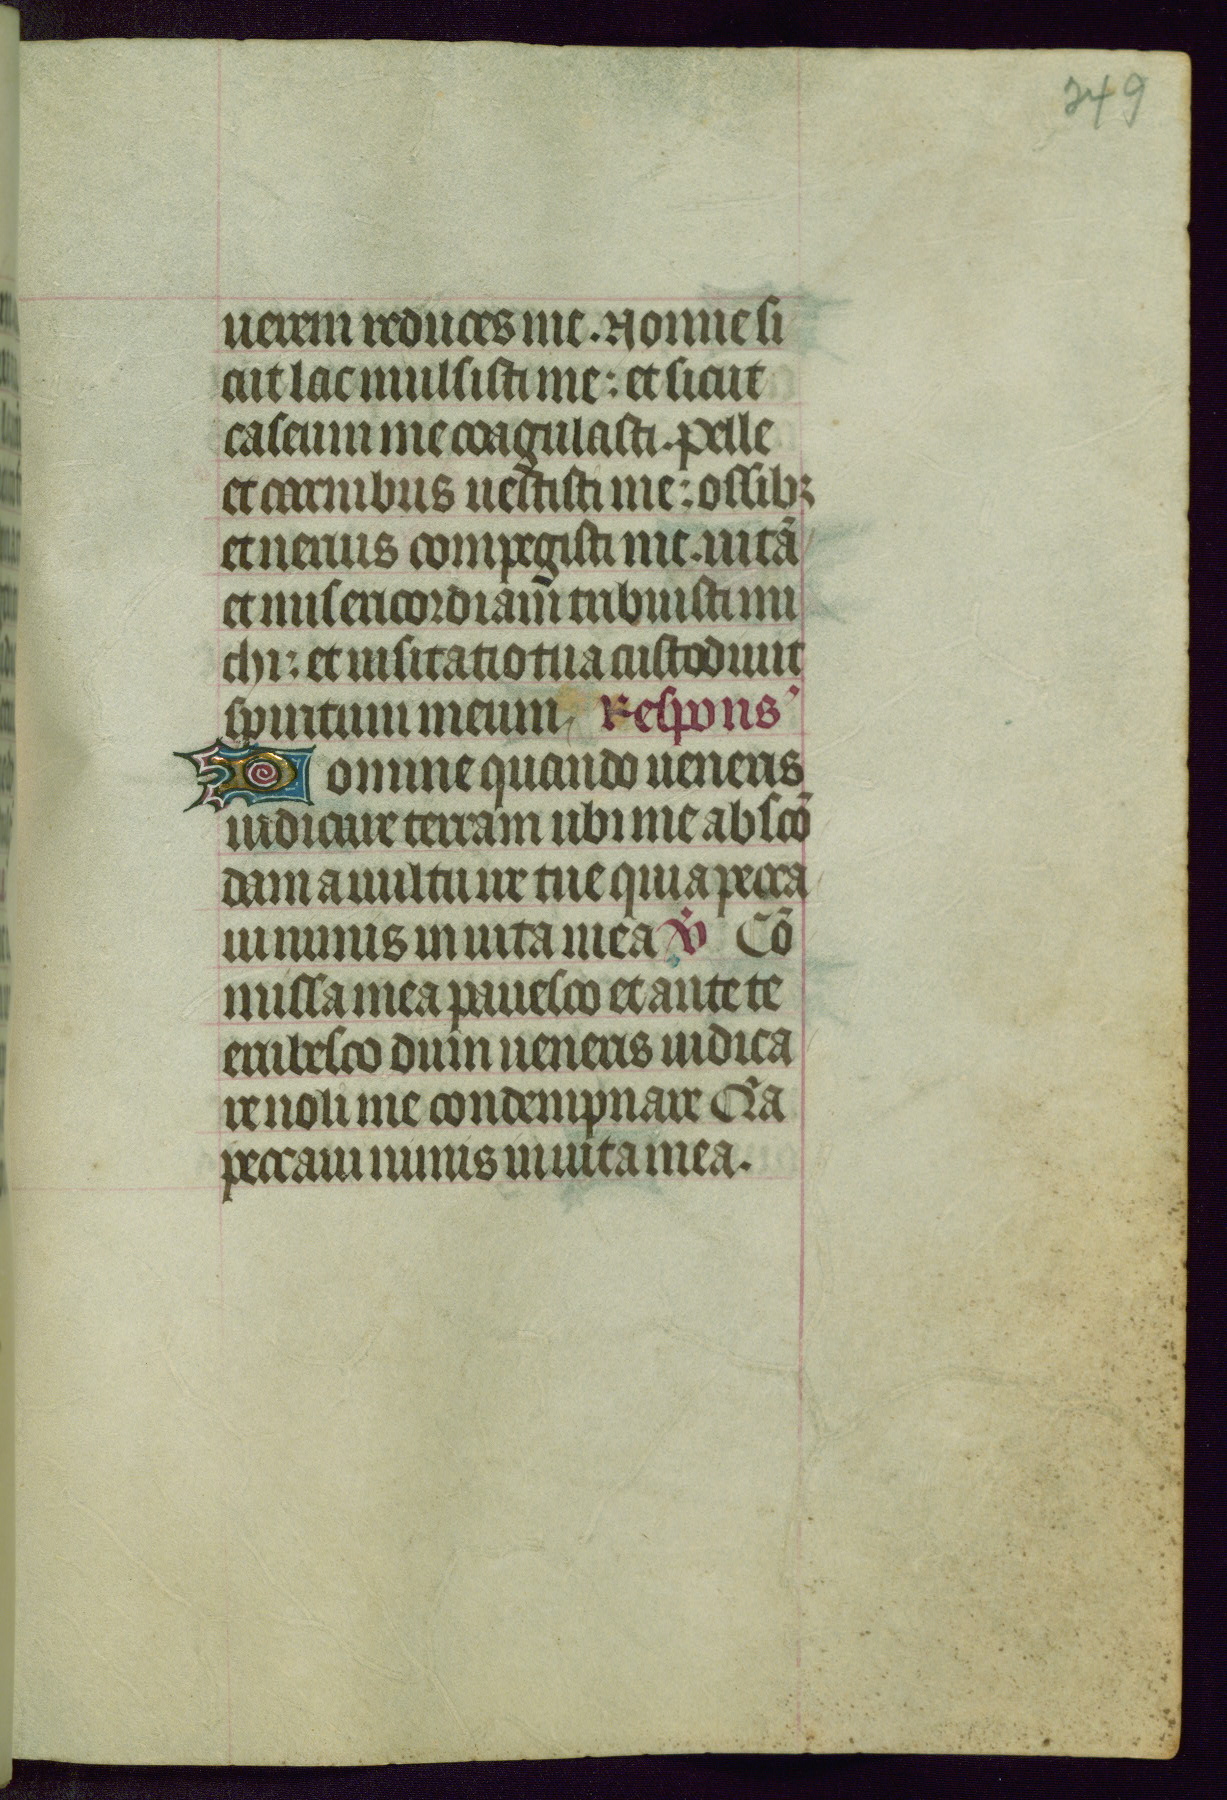 249
uerem reduces me. Nonne si
cut lac mulsisti me: et sicut
caseum me coagulasti. pelle
et carnibus uestisti me: ossibꝫ
et neruis compegisti me. uitā
et misericordiam̄ tribuisti mi
chi: et uisitatio tua custodiuit
spiritum meum Respons'
Domine quando ueneris
iudicare terram ubi me abscō
dam a uultu ire tue quia pecca
ui nimis in uita mea ℣ Cō
missa mea pauesco et ante te
erubesco dum ueneris iudica
re noli me condempnare Qr̄a
peccaui nimis in uita mea.